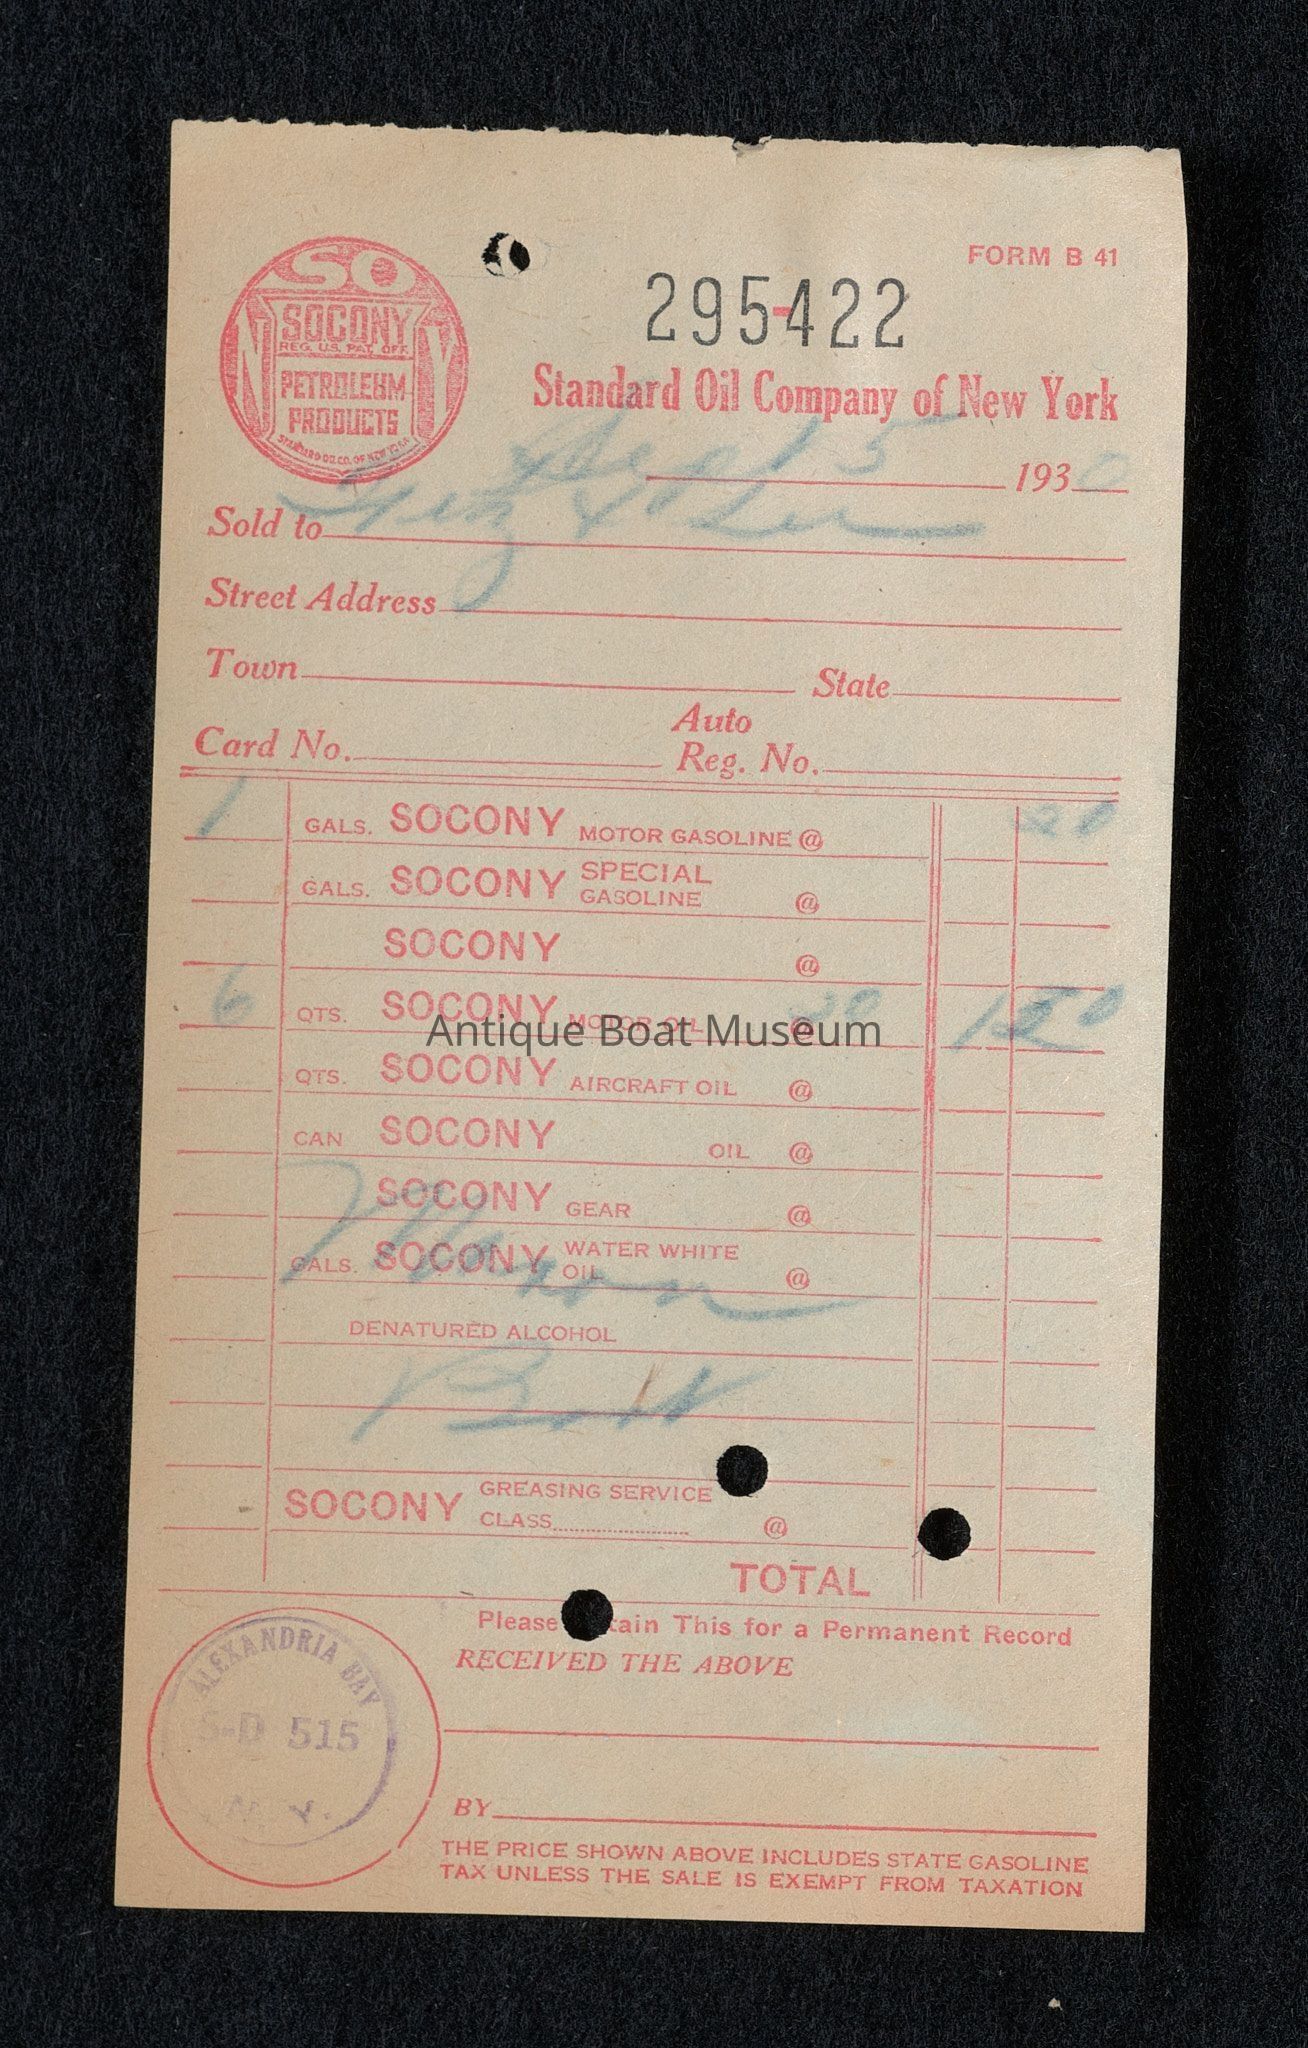 SO
SOCONY
REG. U.S. PAT. OFF.
PETROLEUM
PRODUCTS
STANDARD OIL CO. OF NEW YORK
NY
FORM B 41
295-422
Standard Oil Company of New York
Sept 5 1930
Sold to
Street Address
Town State
Auto
Card No. Reg. No.
1 GALS. SOCONY MOTOR GASOLINE @ 20
GALS. SOCONY SPECIAL GASOLINE @
SOCONY @
6 QTS. SOCONY MOTOR OIL @ 1 50
Antique Boat Museum
QTS. SOCONY AIRCRAFT OIL @
CAN SOCONY OIL @
SOCONY GEAR @
GALS. SOCONY WATER WHITE OIL @
DENATURED ALCOHOL
SOCONY GREASING SERVICE
CLASS @
TOTAL
Please tain This for a Permanent Record
RECEIVED THE ABOVE
ALEXANDRIA BAY
S-D 515
N.Y.
BY
THE PRICE SHOWN ABOVE INCLUDES STATE GASOLINE
TAX UNLESS THE SALE IS EXEMPT FROM TAXATION